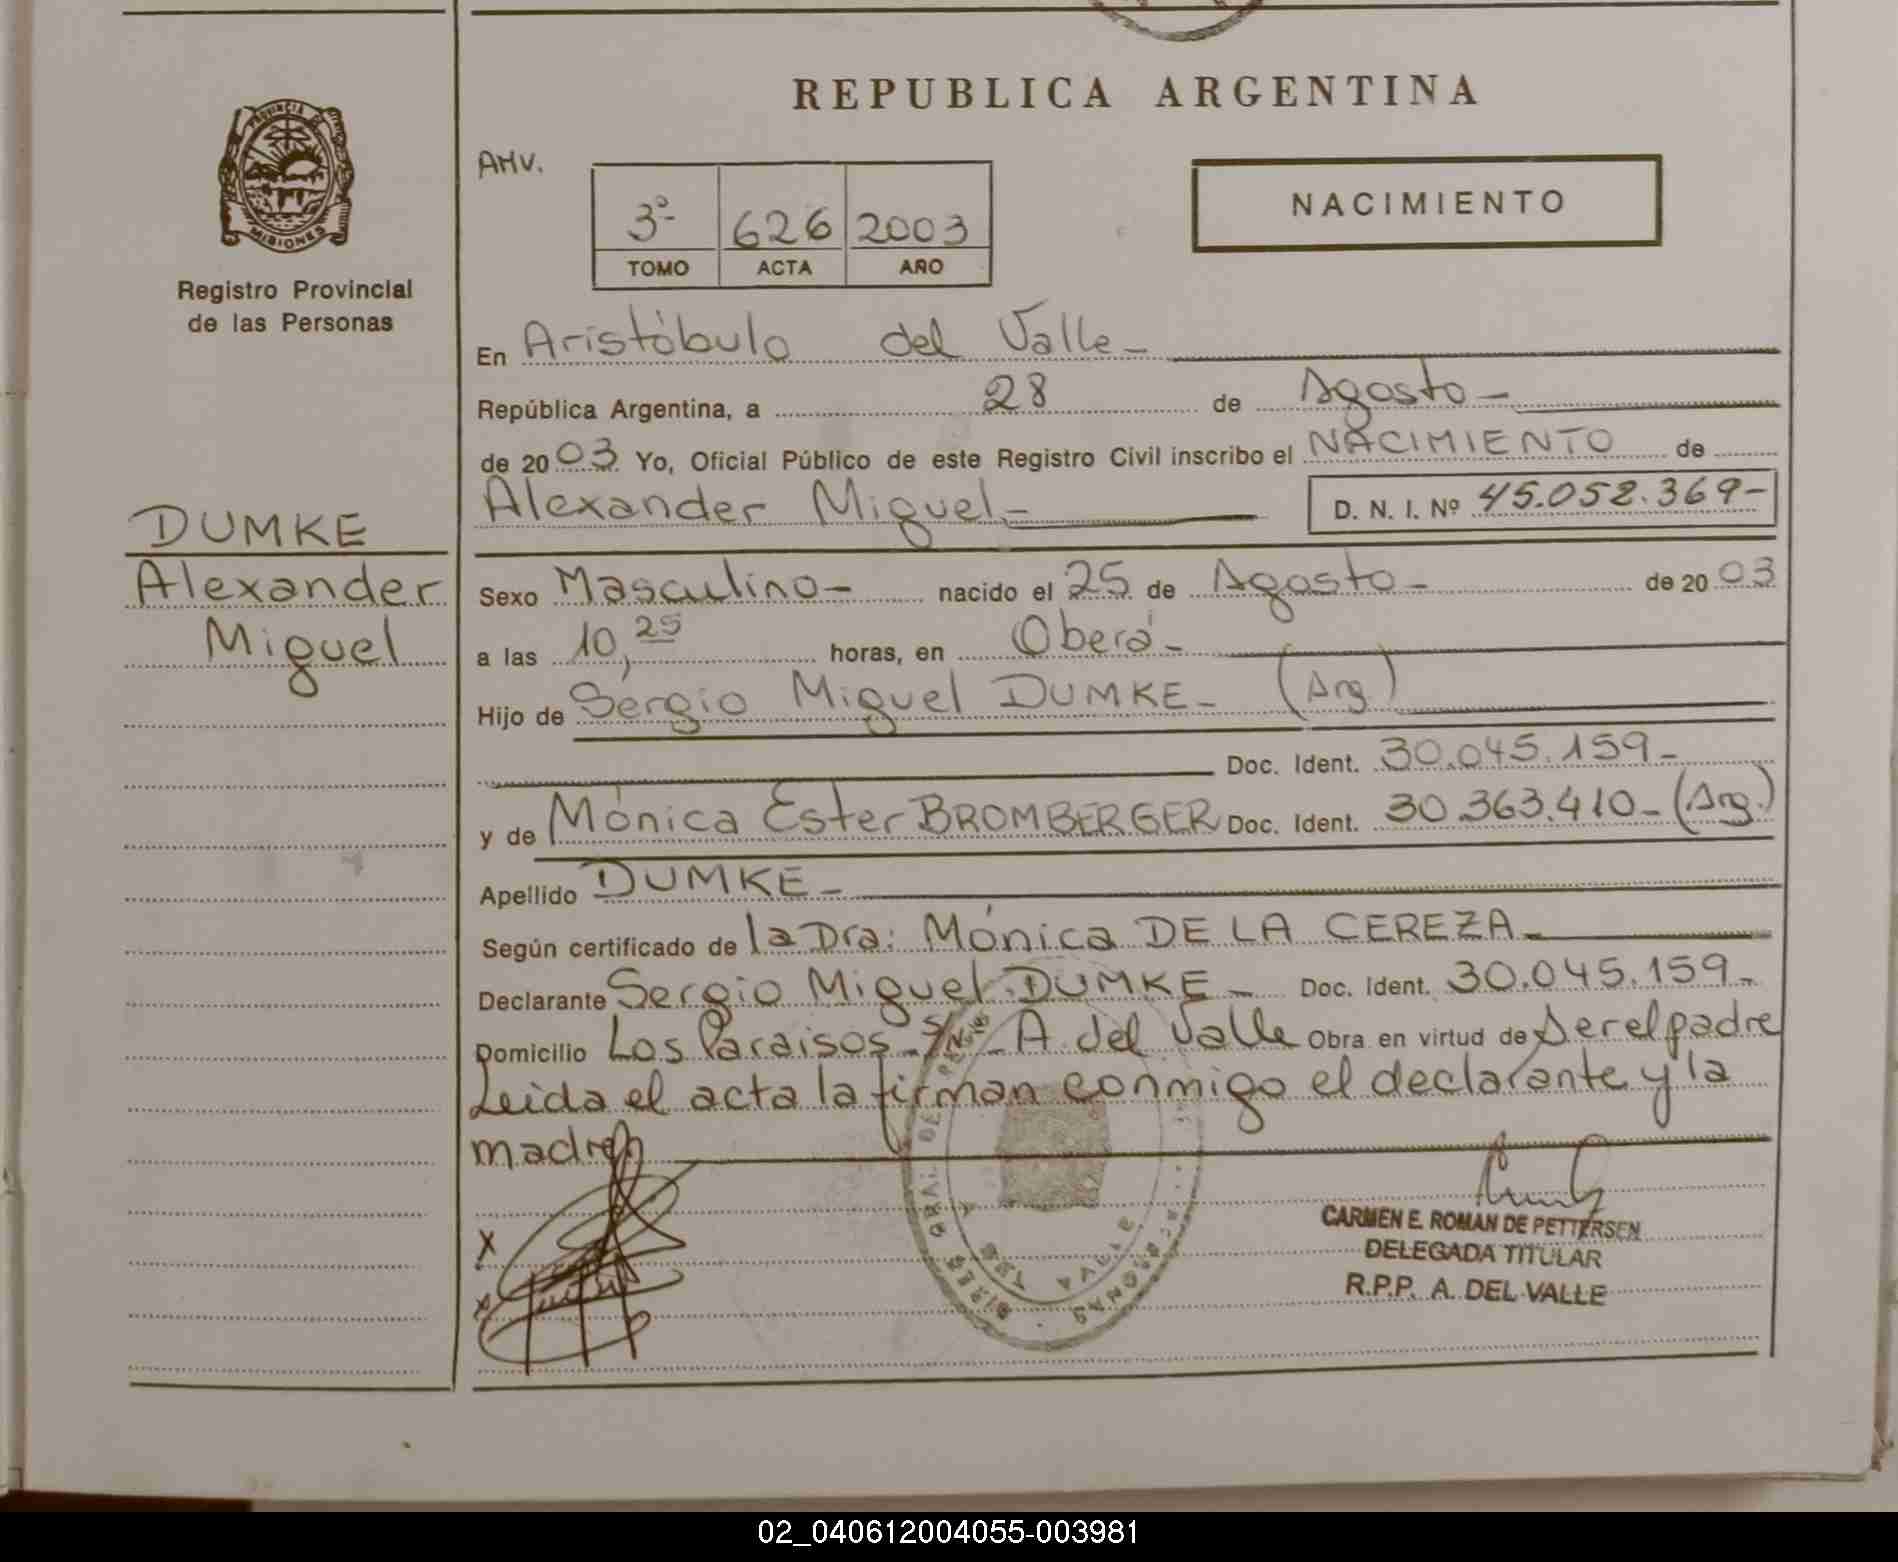 REPUBLICA ARGENTINA
PROVINCIA DE
MISIONES
Registro Provincial
de las Personas
AHV.
3º 626 2003
TOMO ACTA AÑO
NACIMIENTO
En Aristóbulo del Valle-
República Argentina, a 28 de Agosto-
de 2003 Yo, Oficial Público de este Registro Civil inscribo el NACIMIENTO de
Alexander Miguel- D. N. I. Nº 45.052.369-
DUMKE
Alexander
Miguel
Sexo Masculino- nacido el 25 de Agosto- de 2003
a las 10,25 horas, en Oberá-
Hijo de Sergio Miguel DUMKE- (Arg.)
Doc. Ident. 30.045.159-
y de Mónica Ester BROMBERGER Doc. Ident. 30.363.410- (Arg.)
Apellido DUMKE-
Según certificado de la Dra: Mónica DE LA CEREZA-
Declarante Sergio Miguel DUMKE- Doc. Ident. 30.045.159-
Domicilio Los Paraisos S/Nº- A. del Valle Obra en virtud de ser el padre
Leida el acta la firman conmigo el declarante y la
madre
X
X
CARMEN E. ROMAN DE PETTERSEN
DELEGADA TITULAR
R.P.P. A. DEL VALLE
02_040612004055-003981